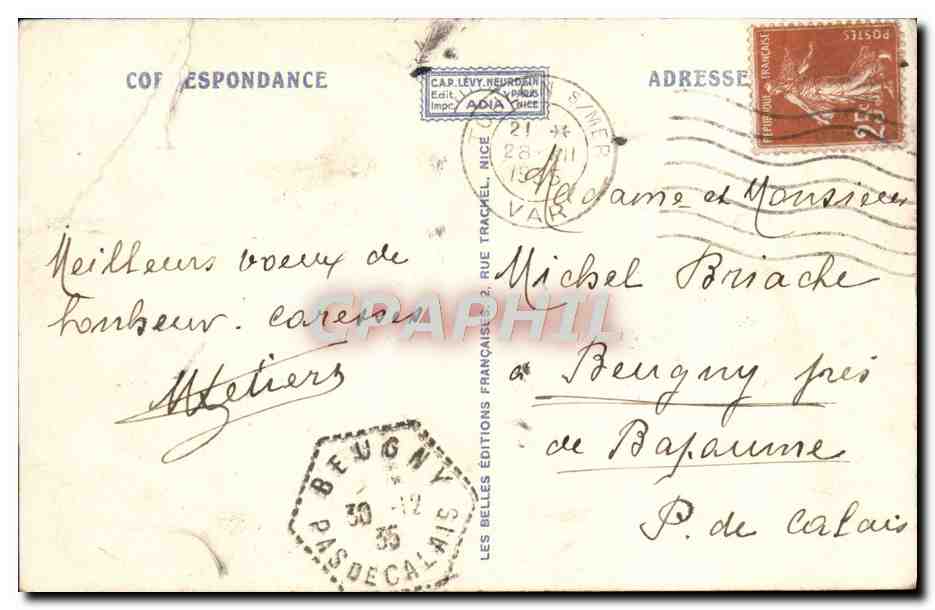 CORRESPONDANCE
C.A.P. LÉVY. NEURDEIN
Edit. PARIS
Impr. ADIA NICE
ADRESSE
RÉPUBLIQUE FRANÇAISE
POSTES
25c
S/MER
21
28 XII
1935
VAR
LES BELLES ÉDITIONS FRANÇAISES, 2, RUE TRACHEL, NICE
Meilleurs voeux de
bonheur. caresses
Madame et Monsieur
Michel Briache
a Beugny près
de Bapaume
P. de Calais
BEUGNY
30 -12
35
PAS DE CALAIS
CPAPHIL